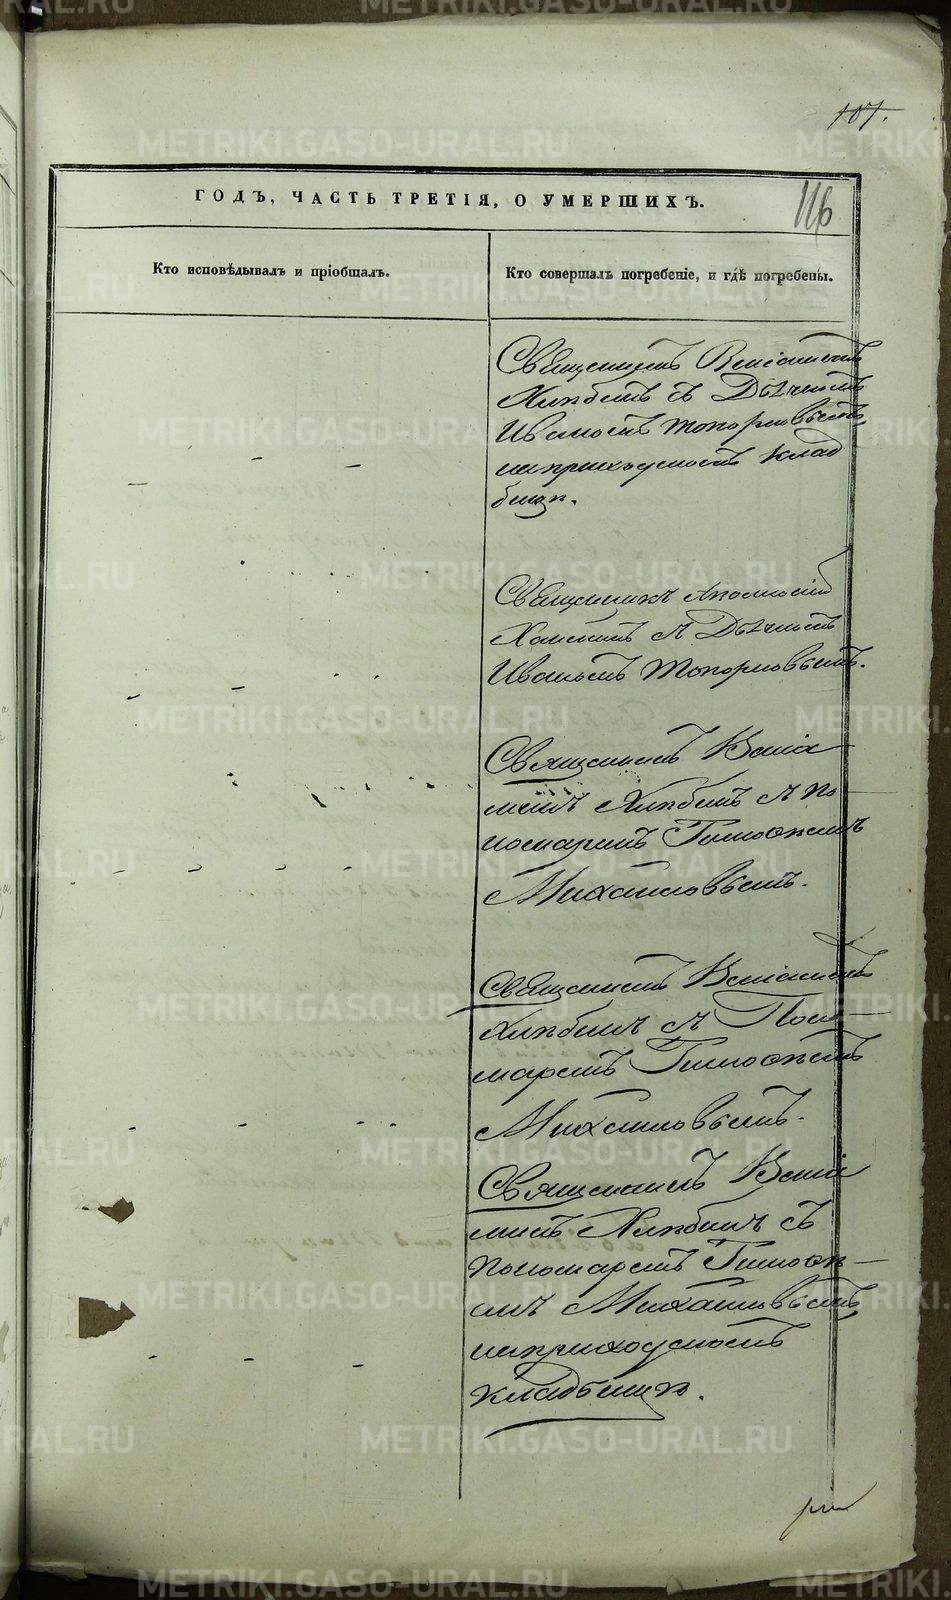 107.
ГОДЪ, ЧАСТЬ ТРЕТІЯ, О УМЕРШИХЪ.
116
Кто исповѣдывалъ и пріобщалъ.
Кто совершалъ погребеніе, и гдѣ погребены.
Священникъ Веніаминъ
Хлѣбинъ съ Дьячкомъ
Иваномъ Топорковымъ
на приходскомъ клад
бищѣ.
Священникъ Аполлоній
съ Дьячкомъ
Иваномъ Топорковымъ.
Священникъ Веніа
минъ Хлѣбинъ съ по
номаремъ Тимоѳеемъ
Михайловымъ.
Священникъ Веніаминъ
Хлѣбинъ съ Поно
маремъ Тимоѳеемъ
Михайловымъ.
Священникъ Веніа
минъ Хлѣбинъ съ
пономаремъ Тимоѳе
емъ Михайловымъ
на приходскомъ
кладбищѣ.
METRIKI.GASO-URAL.RU